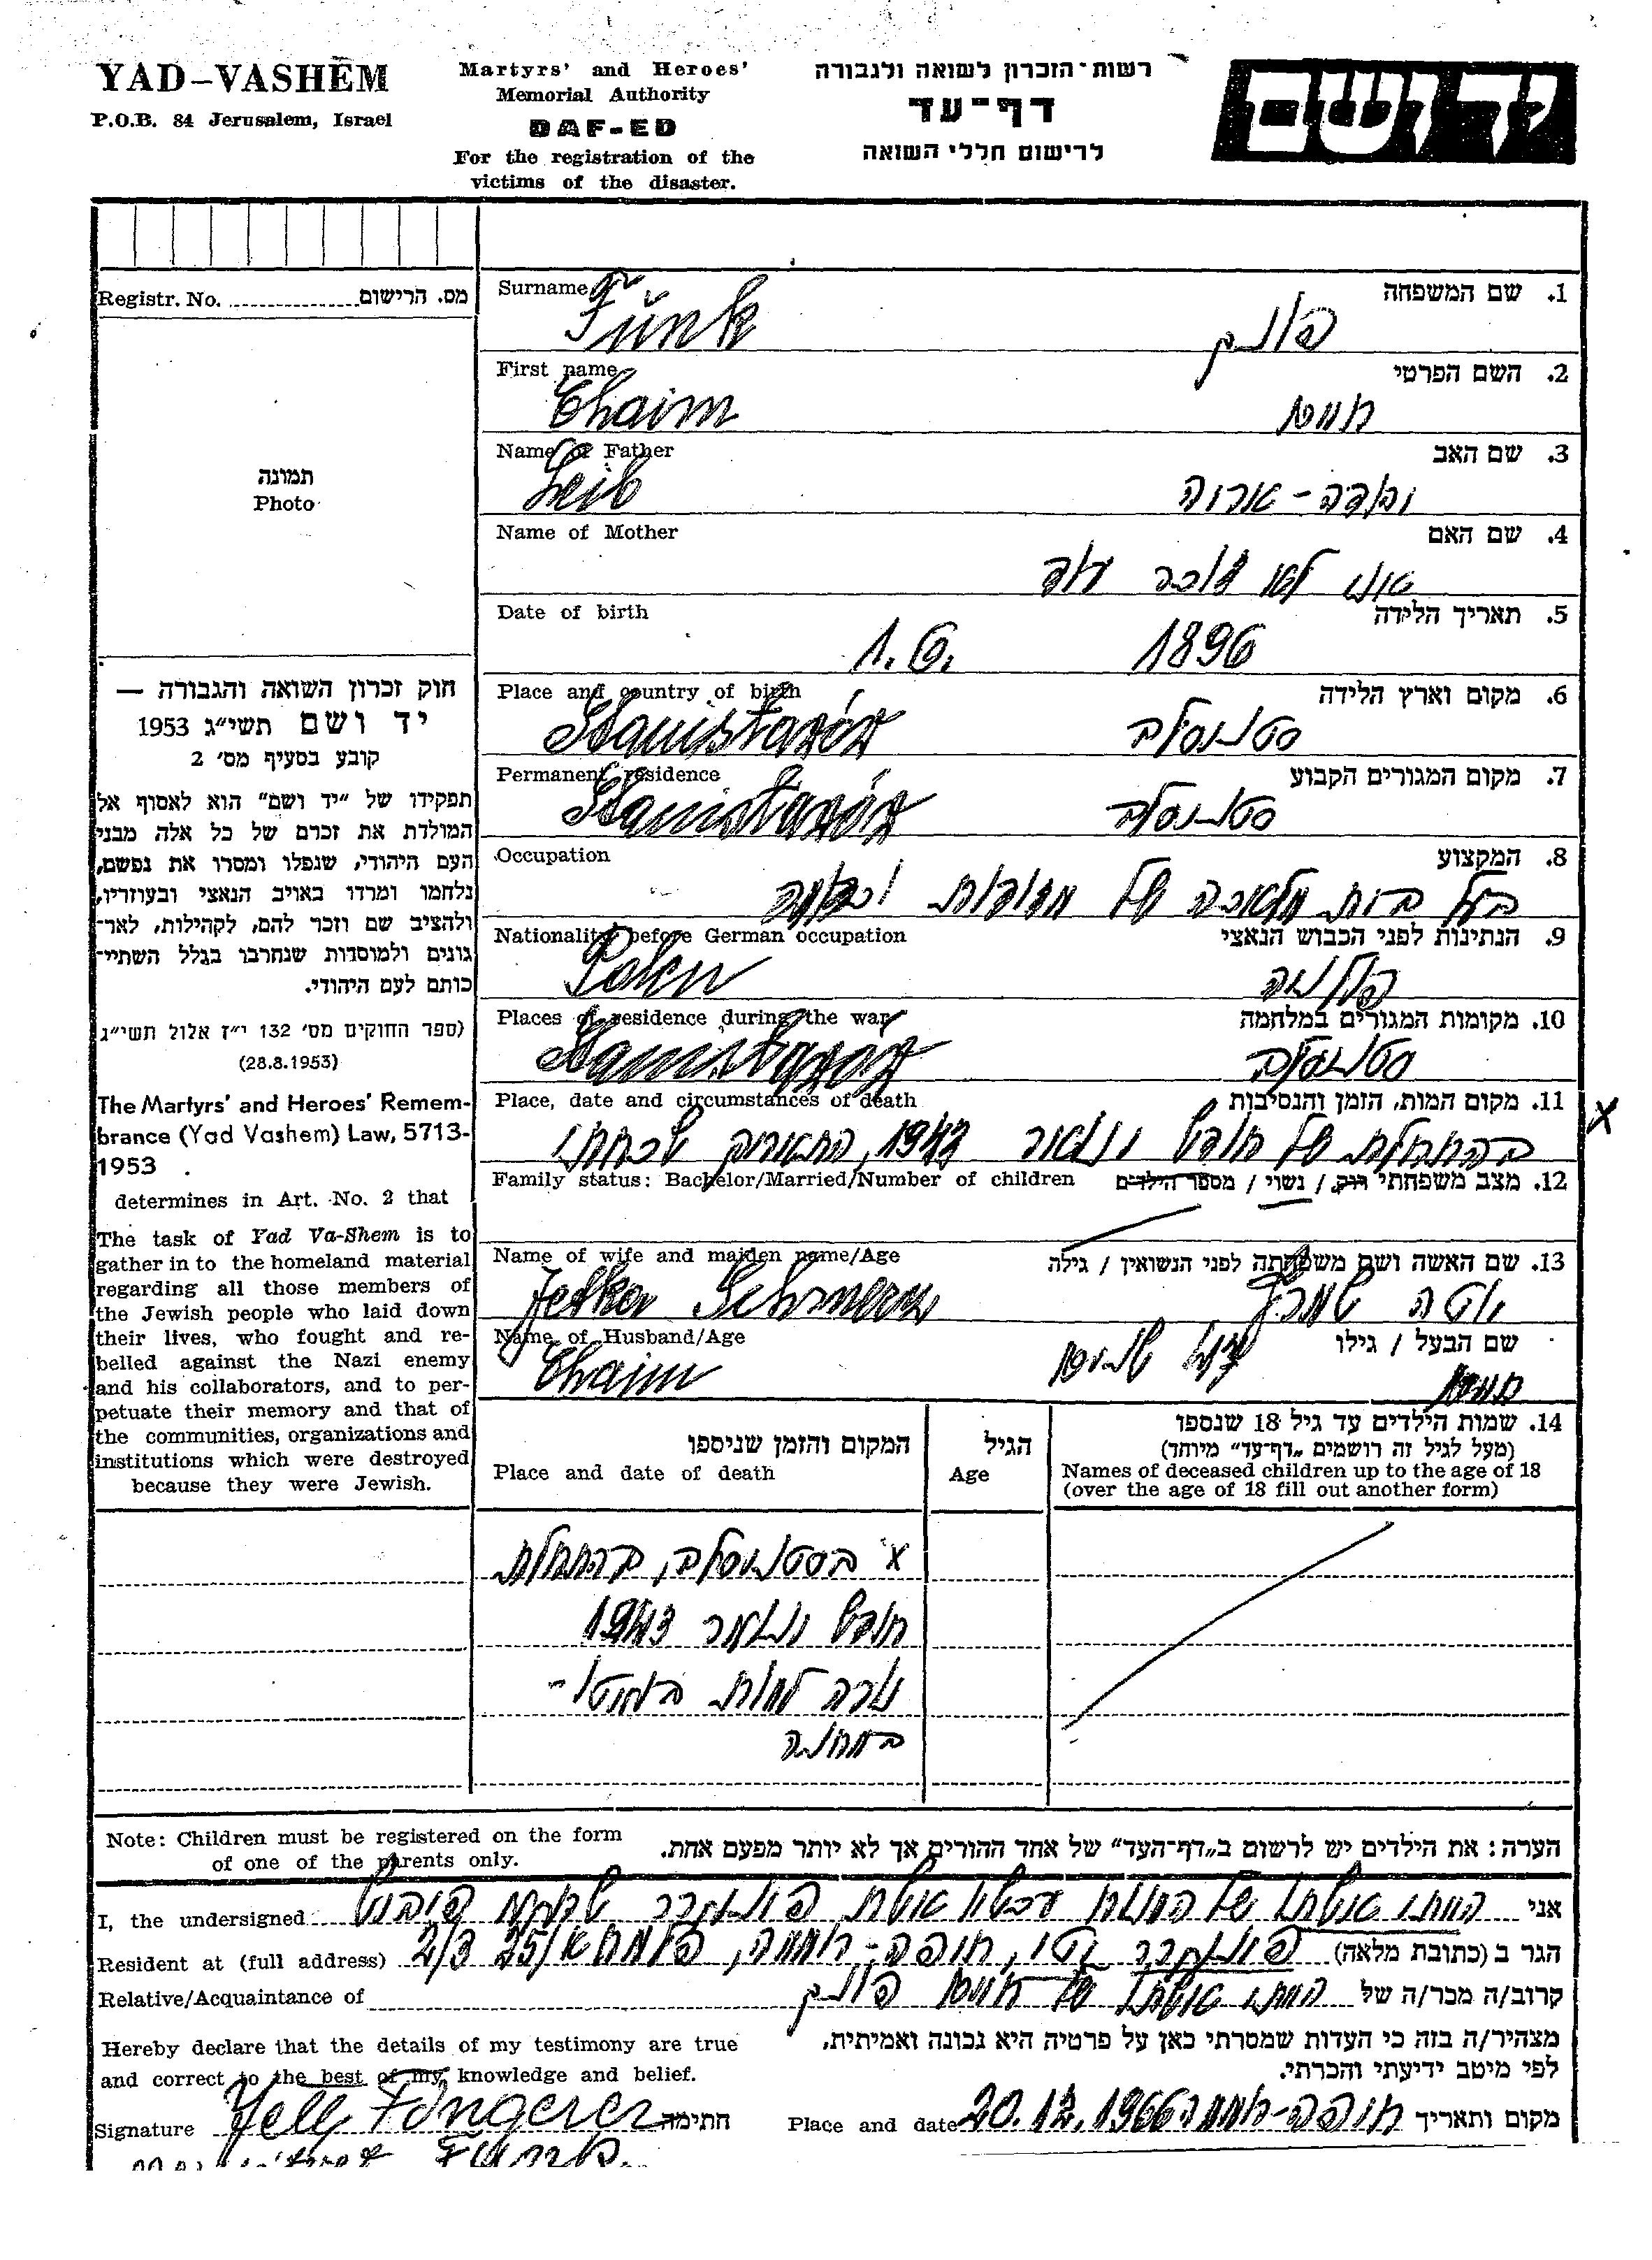 YAD-VASHEM
P.O.B. 84 Jerusalem, Israel
Martyrs' and Heroes'
Memorial Authority
DAF-ED
For the registration of the
victims of the disaster.
רשות-הזכרון לשואה ולגבורה
דף-עד
לרישום חללי השואה
יד ושם
Registr. No. מס. הרישום
תמונה
Photo
חוק זכרון השואה והגבורה —
יד ושם תשי״ג 1953
קובע בסעיף מס׳ 2
תפקידו של ״יד ושם״ הוא לאסוף אל
המולדת את זכרם של כל אלה מבני
העם היהודי, שנפלו ומסרו את נפשם,
נלחמו ומרדו באויב הנאצי ובעוזריו,
ולהציב שם וזכר להם, לקהילות, לאר־
גונים ולמוסדות שנחרבו בגלל השתיי־
כותם לעם היהודי.
(ספר החוקים מס׳ 132 י״ז אלול תשי״ג
(28.8.1953)
The Martyrs' and Heroes' Remem-
brance (Yad Vashem) Law, 5713-
1953
determines in Art. No. 2 that
The task of Yad Va-Shem is to
gather in to the homeland material
regarding all those members of
the Jewish people who laid down
their lives, who fought and re-
belled against the Nazi enemy
and his collaborators, and to per-
petuate their memory and that of
the communities, organizations and
institutions which were destroyed
because they were Jewish.
Surname 1. שם המשפחה
Funk פונק
First name 2. השם הפרטי
Chaim חיים
Name of Father 3. שם האב
Leib יהודה-אריה
Name of Mother 4. שם האם
אני לא זוכר עוד
Date of birth 5. תאריך הלידה
1.6. 1896
Place and country of birth 6. מקום וארץ הלידה
Stanisławów סטניסלב
Permanent residence 7. מקום המגורים הקבוע
Stanisławów סטניסלב
Occupation 8. המקצוע
בעל בית מלאכה של
Nationality before German occupation 9. הנתינות לפני הכבוש הנאצי
Polen פולניה
Places of residence during the war 10. מקומות המגורים במלחמה
Stanisławów סטניסלב
Place, date and circumstances of death 11. מקום המות, הזמן והנסיבות
בהתחלת של חודש ינואר 1943, התאריך שכחתי x
Family status: Bachelor/Married/Number of children 12. מצב משפחתי רוק / נשוי / מספר הילדים
Name of wife and maiden name/Age 13. שם האשה ושם משפחתה לפני הנשואין / גילה
Name of Husband/Age שם הבעל / גילו
Chaim חיים
14. שמות הילדים עד גיל 18 שנספו
(מעל לגיל זה רושמים ״דף-עד״ מיוחד)
Names of deceased children up to the age of 18
(over the age of 18 fill out another form)
הגיל
Age
המקום והזמן שניספו
Place and date of death
x בסטניסלב, בהתחלת
חודש ינואר 1943
נורה למות בגיטו-
במחנה
Note: Children must be registered on the form
of one of the parents only.
הערה: את הילדים יש לרשום ב״דף-העד״ של אחד ההורים אך לא יותר מפעם אחת.
I, the undersigned הייתי אשתו של המנוח עכשיו אשת פינגרר אני
Resident at (full address) 2/3 חיפה- הגר ב (כתובת מלאה)
Relative/Acquaintance of הייתי אשתו של חיים פונק קרוב/ה מכר/ה של
Hereby declare that the details of my testimony are true
and correct to the best of my knowledge and belief.
מצהיר/ה בזה כי העדות שמסרתי כאן על פרטיה היא נכונה ואמיתית,
לפי מיטב ידיעתי והכרתי.
Signature חתימה
Place and date 20.12.1966 חיפה- מקום ותאריך
Funk